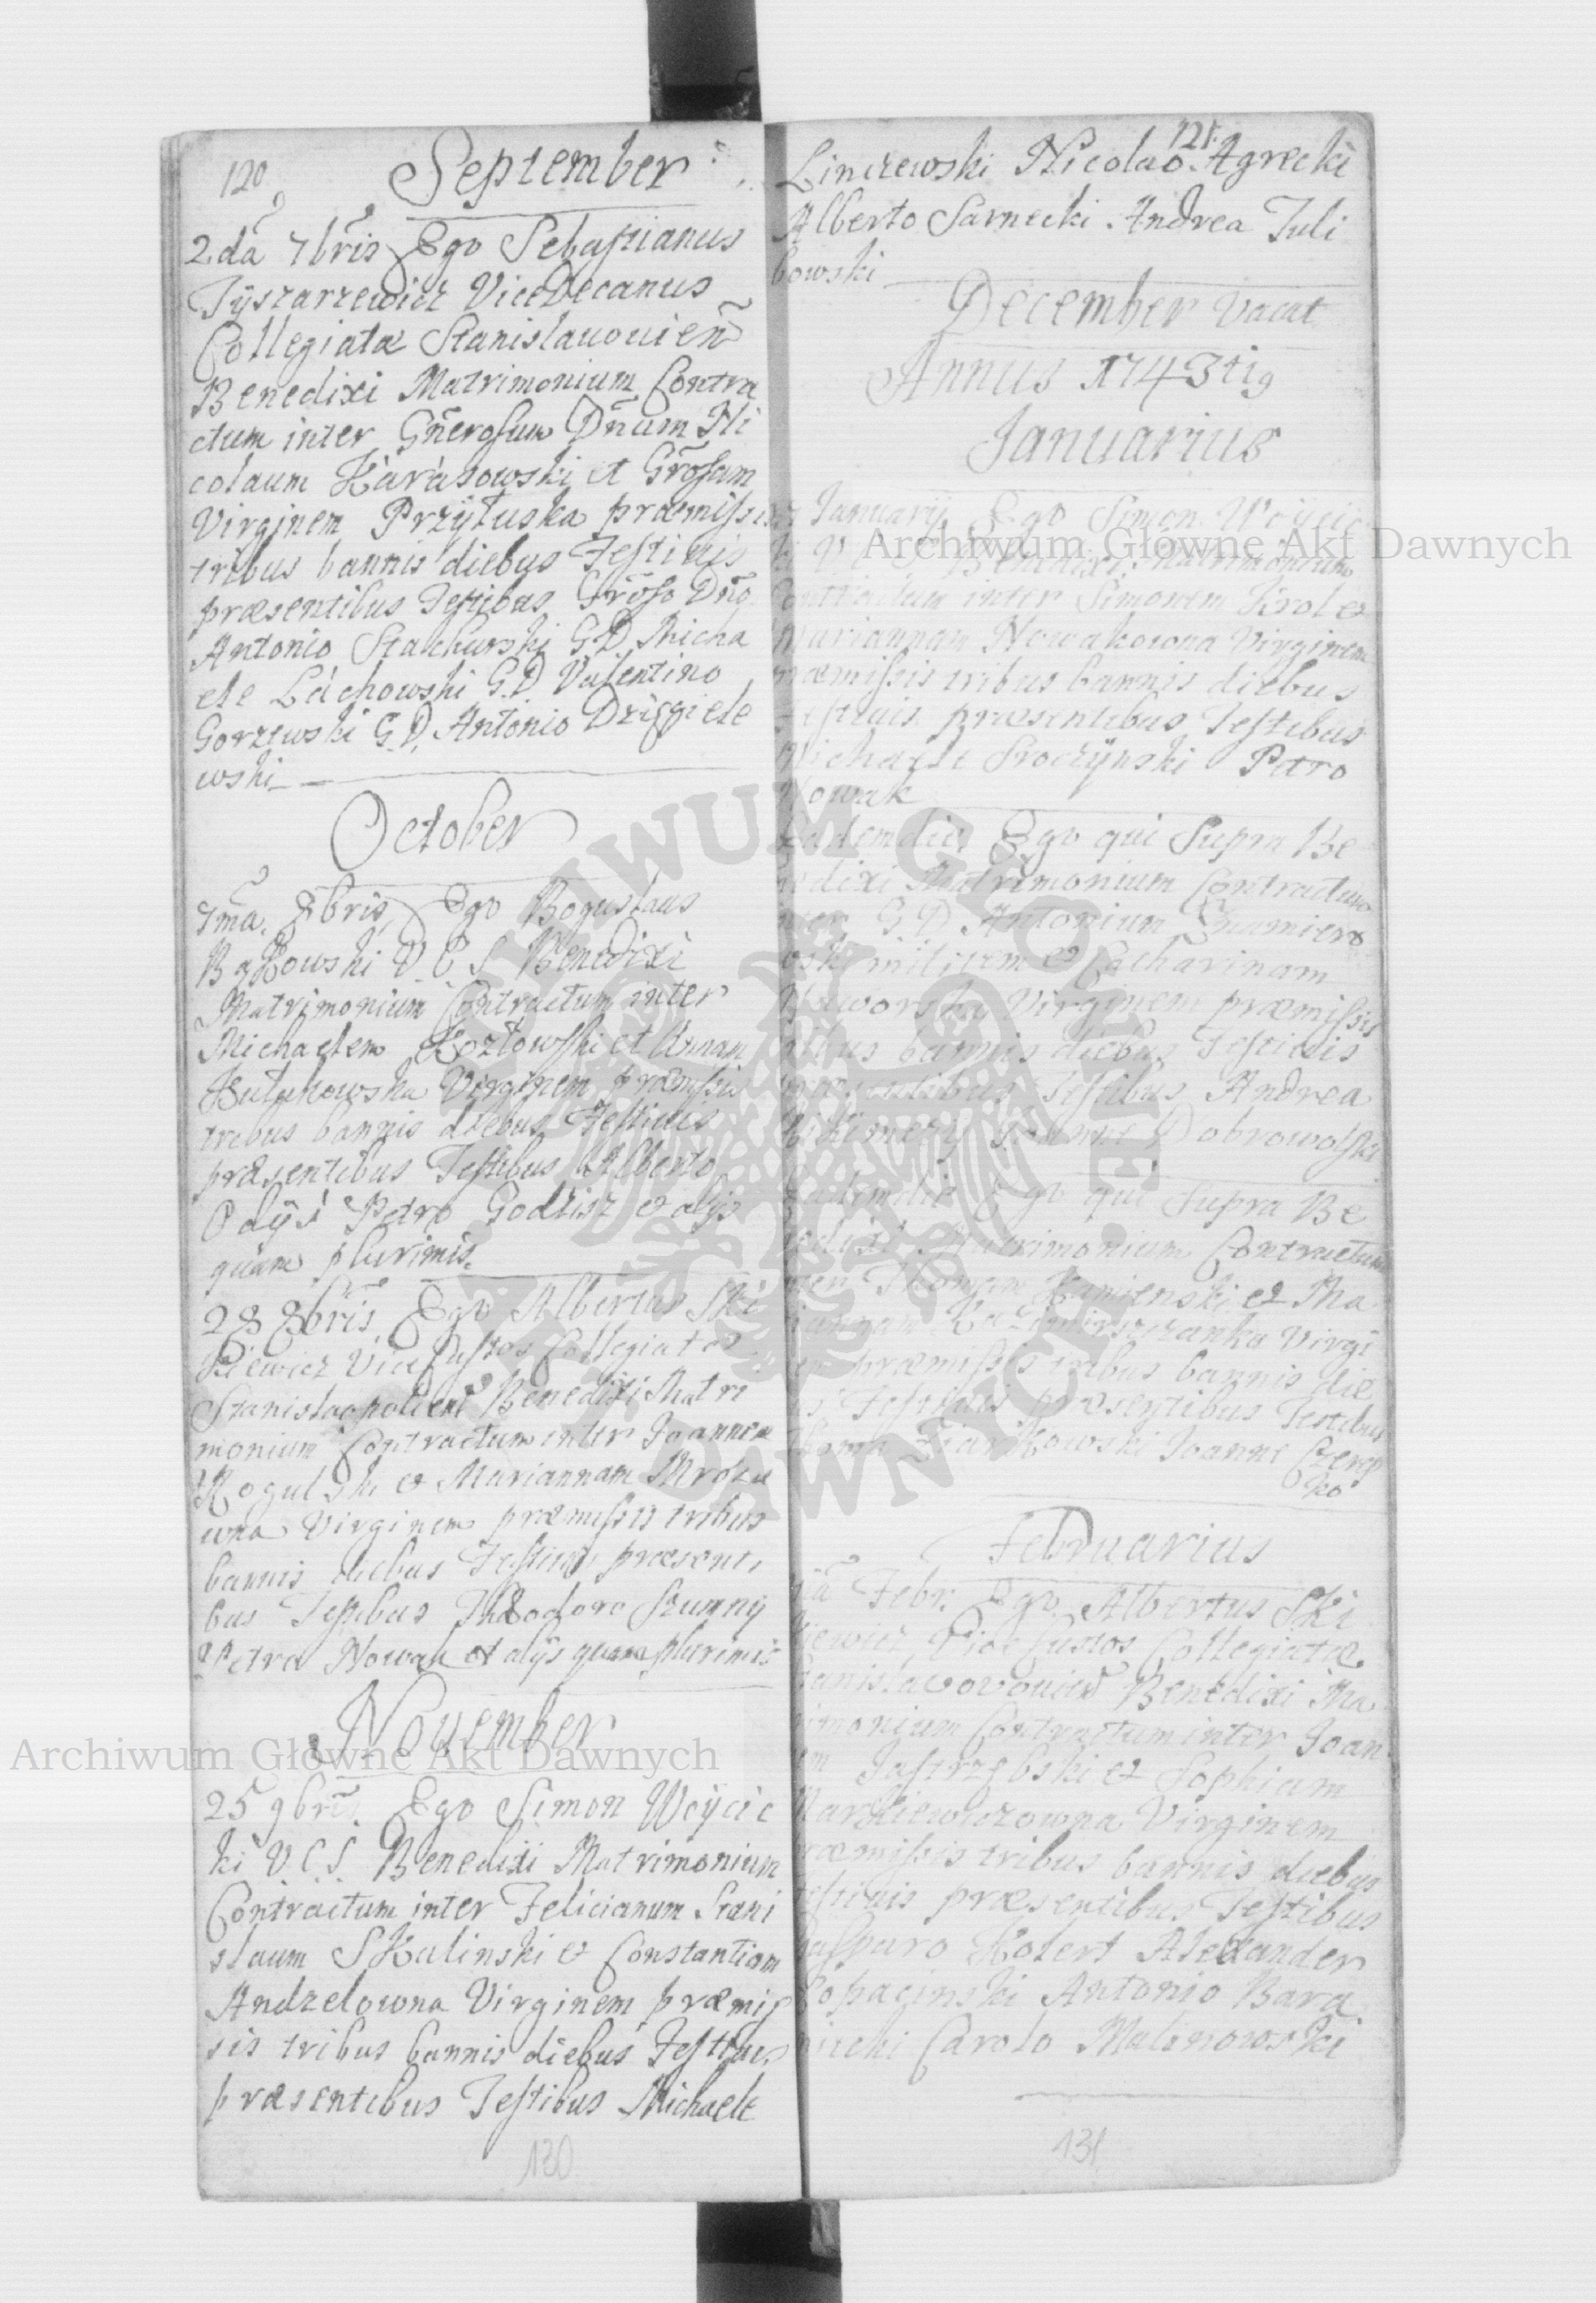 120
September
2da 7bris Ego Sebastianus
Tyszarzewicz ViceDecanus
Collegiatæ Stanislauouien
Benedixi Matrimonium Contra
ctum inter Gnerosum Dnum Ni
colaum Karasowski et Grosam
Virginem Przyłuska præmissis
tribus bannis diebus Festiuis
præsentibus Testibus Groso Dno
Antonio Stachurski G D Micha
ele Láchowski G.D Valentino
Gorzewski G.D. Antonio Dzięgiele
wski
October
7ma 8bris Ego Boguslaus
Bąkowski V C S Benedixi
Matrimonium Contractum inter
Michaelem Kozłowski et Annam
Virginem præmissis
tribus bannis diebus Festiuis
præsentibus Testibus Alberto
Petro Godlisz et alys
quam plurimis.
28 8bris Ego Albertus Ski
kiewicz Vice Custos Collegiatæ
Stanislaopolien Benedixi Matri
monium Contractum inter Joannem
Rogulski et Mariannam Mrozu
wna Virginem præmissis tribus
bannis diebus Festiuis præsenti
bus Testibus Theodoro Szumny
Petro Nowak et alys quam plurimis
November
25 9bris Ego Simon Woycic
ki V.C.S. Benedixi Matrimonium
Contractum inter Felicianum Stani
slaum Skalinski et Constantiam
Andzelowna Virginem præmis
sis tribus bannis diebus Festiuis
præsentibus Testibus Michaele
130
121.
Linczewski Nicolao Agrecki
Alberto Sarnecki Andrea Juli
bowski
December Vacat
Annus 1743tig
Januarius
January Ego Simon Woycic
ki V Benedixi Matrimonium
Contractum inter Simonem Krol et
Mariannam Nowakowna Virginem
præmissis tribus bannis diebus
Festiuis præsentibus Testibus
Michaele Sroczynski Petro
Nowak
Eadem die Ego qui Supra Be
nedixi Matrimonium Contractum
inter G D Antonium Znamiero
wski militem et Catharinam
Jaworska Virginem præmissis
tribus bannis diebus Festiuis
præsentibus Testibus Andrea
Joanne Dobrowolski
Eadem die Ego qui Supra Be
nedixi Matrimonium Contractum
inter Thomam Kamienski et Ma
riannam Virgi
nem præmissis tribus bannis die
bus Festiuis præsentibus Testibus
Thoma Joanne Czerep
ko
Februarius
Febr. Ego Albertus Ski
kiewicz Vice Custos Collegiatæ
Stanislaovouien Benedixi Ma
trimonium Contractum inter Joan
nem Jastrzębski et Sophiam
Markiewiczowna Virginem
præmissis tribus bannis diebus
Festiuis præsentibus Testibus
Gasparo Kolert Alexander
Łopacinski Antonio Bara
niecki Carolo Malinowski
131
Archiwum Główne Akt Dawnych
Archiwum Główne Akt Dawnych
ARCHIWUM GŁÓWNE AKT DAWNYCH